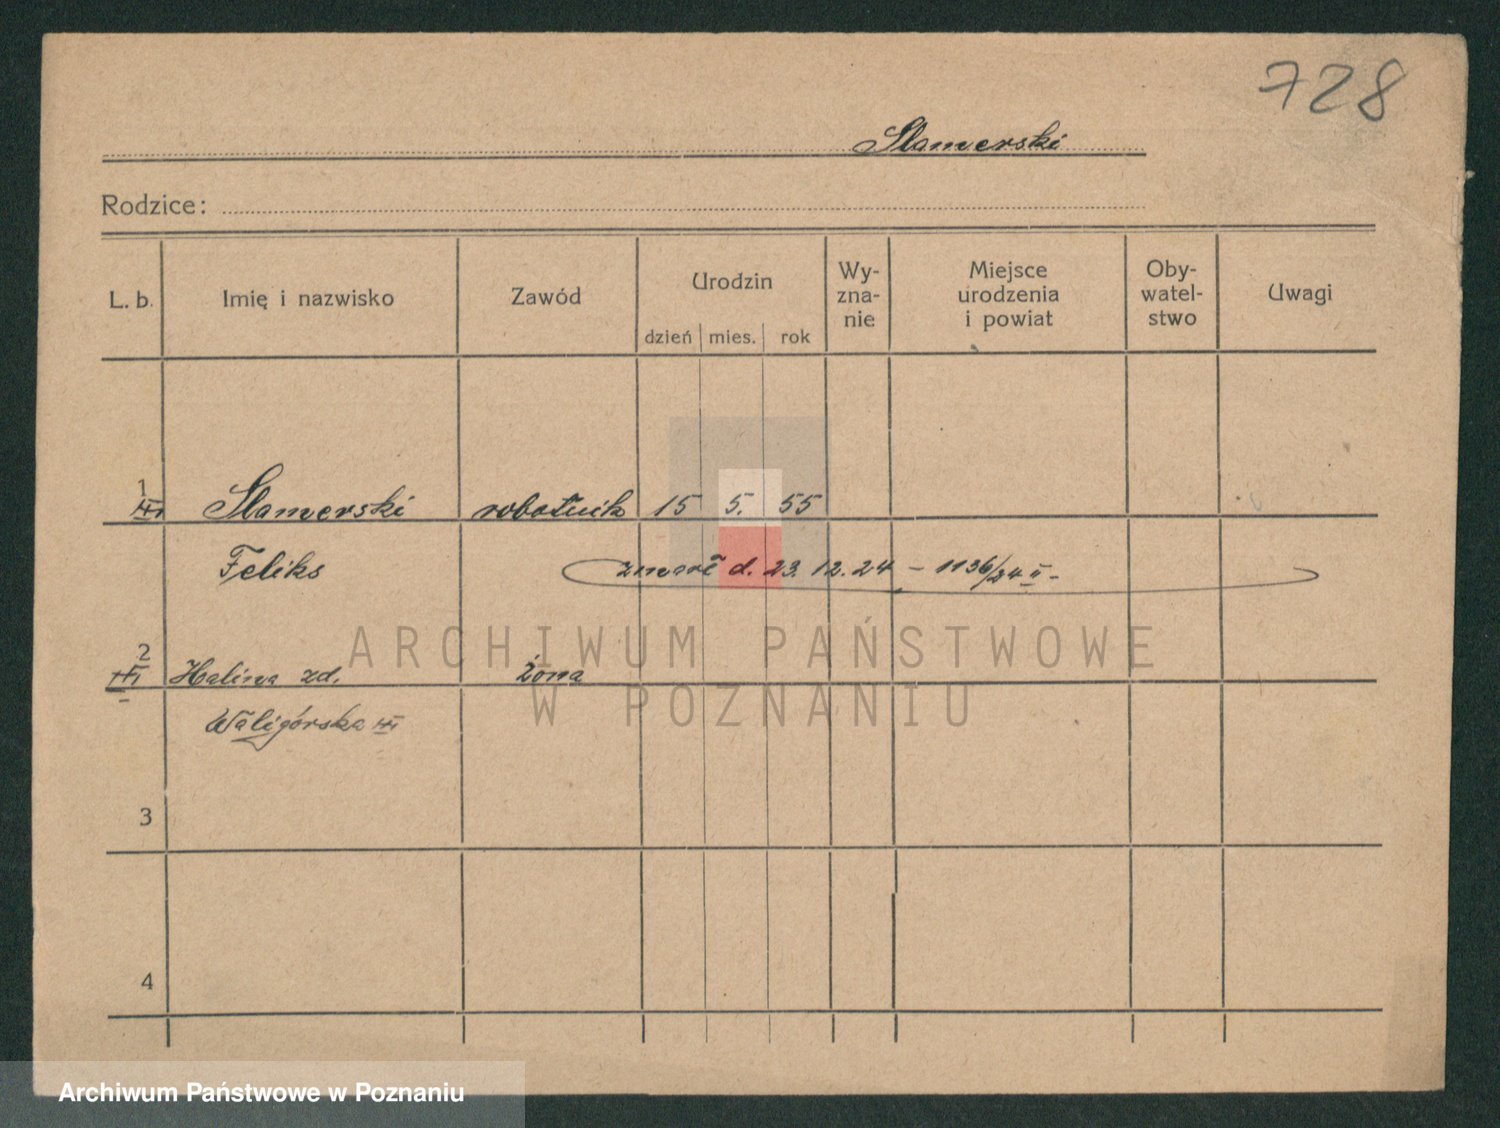 728
Slamerski
Rodzice:
L. b. Imię i nazwisko Zawód Urodzin dzień mies. rok Wy-zna-nie Miejsce urodzenia i powiat Oby-watel-stwo Uwagi
1 Slamerski robotnik 15 5. 55
Feliks zmarł d. 23. 12. 24 – 1136/24 II –
2 Halina zd. żona
Waligórska
3
4
ARCHIWUM PAŃSTWOWE
W POZNANIU
Archiwum Państwowe w Poznaniu